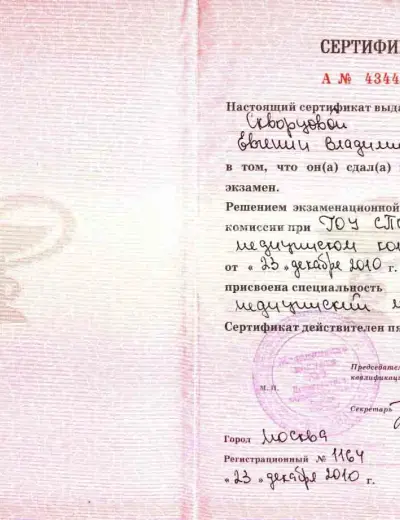 СЕРТИФИ
А № 4344
Настоящий сертификат выда
Скворцовой
Евгении Владими
в том, что он(а) сдал(а)
экзамен.
Решением экзаменационной
комиссии при ГОУ СПО
медицинском кол
от « 23 » декабря 2010 г.
присвоена специальность
медицинский м
Сертификат действителен пя
Председател
квалификац
М. П.
Секретарь
Город Москва
Регистрационный № 1164
« 23 » декабря 2010 г.